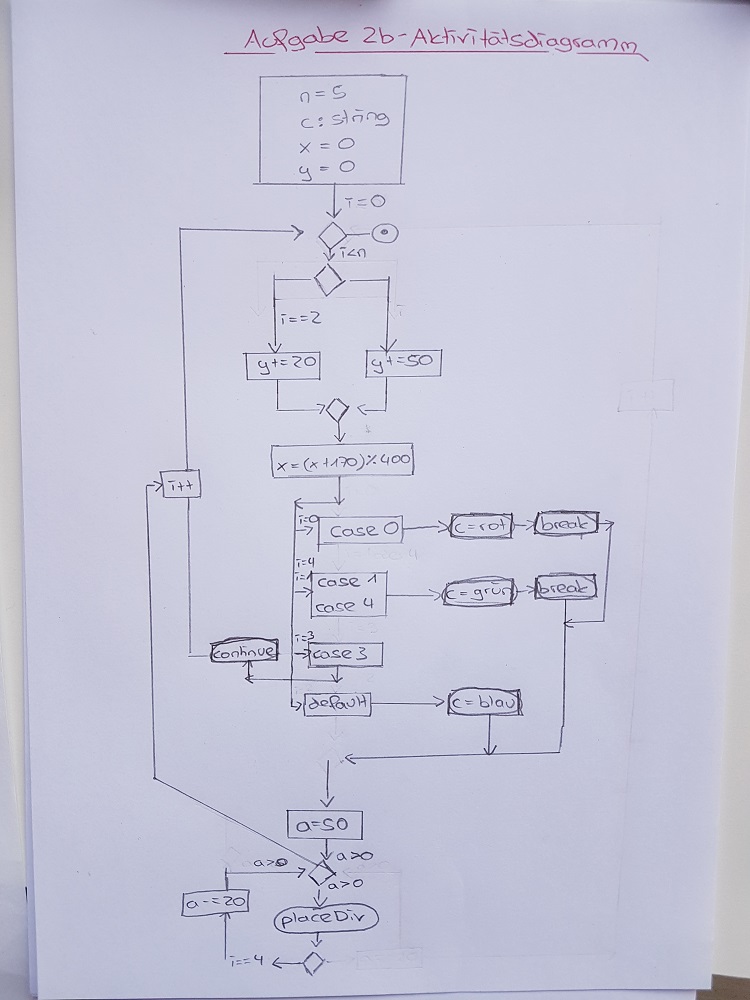 Aufgabe 2b-Aktivitätsdiagramm
n=5
c: string
x = 0
y = 0
i=0
i<n
i==2
y+=20
y+=50
x=(x+170)%400
i++
i=0
case 0
c=rot
break
i=4
i=1
case 1
case 4
c=grün
break
i=3
continue
case 3
default
c=blau
a=50
a>0
a>0
a>0
a-=20
placeDiv
i==4